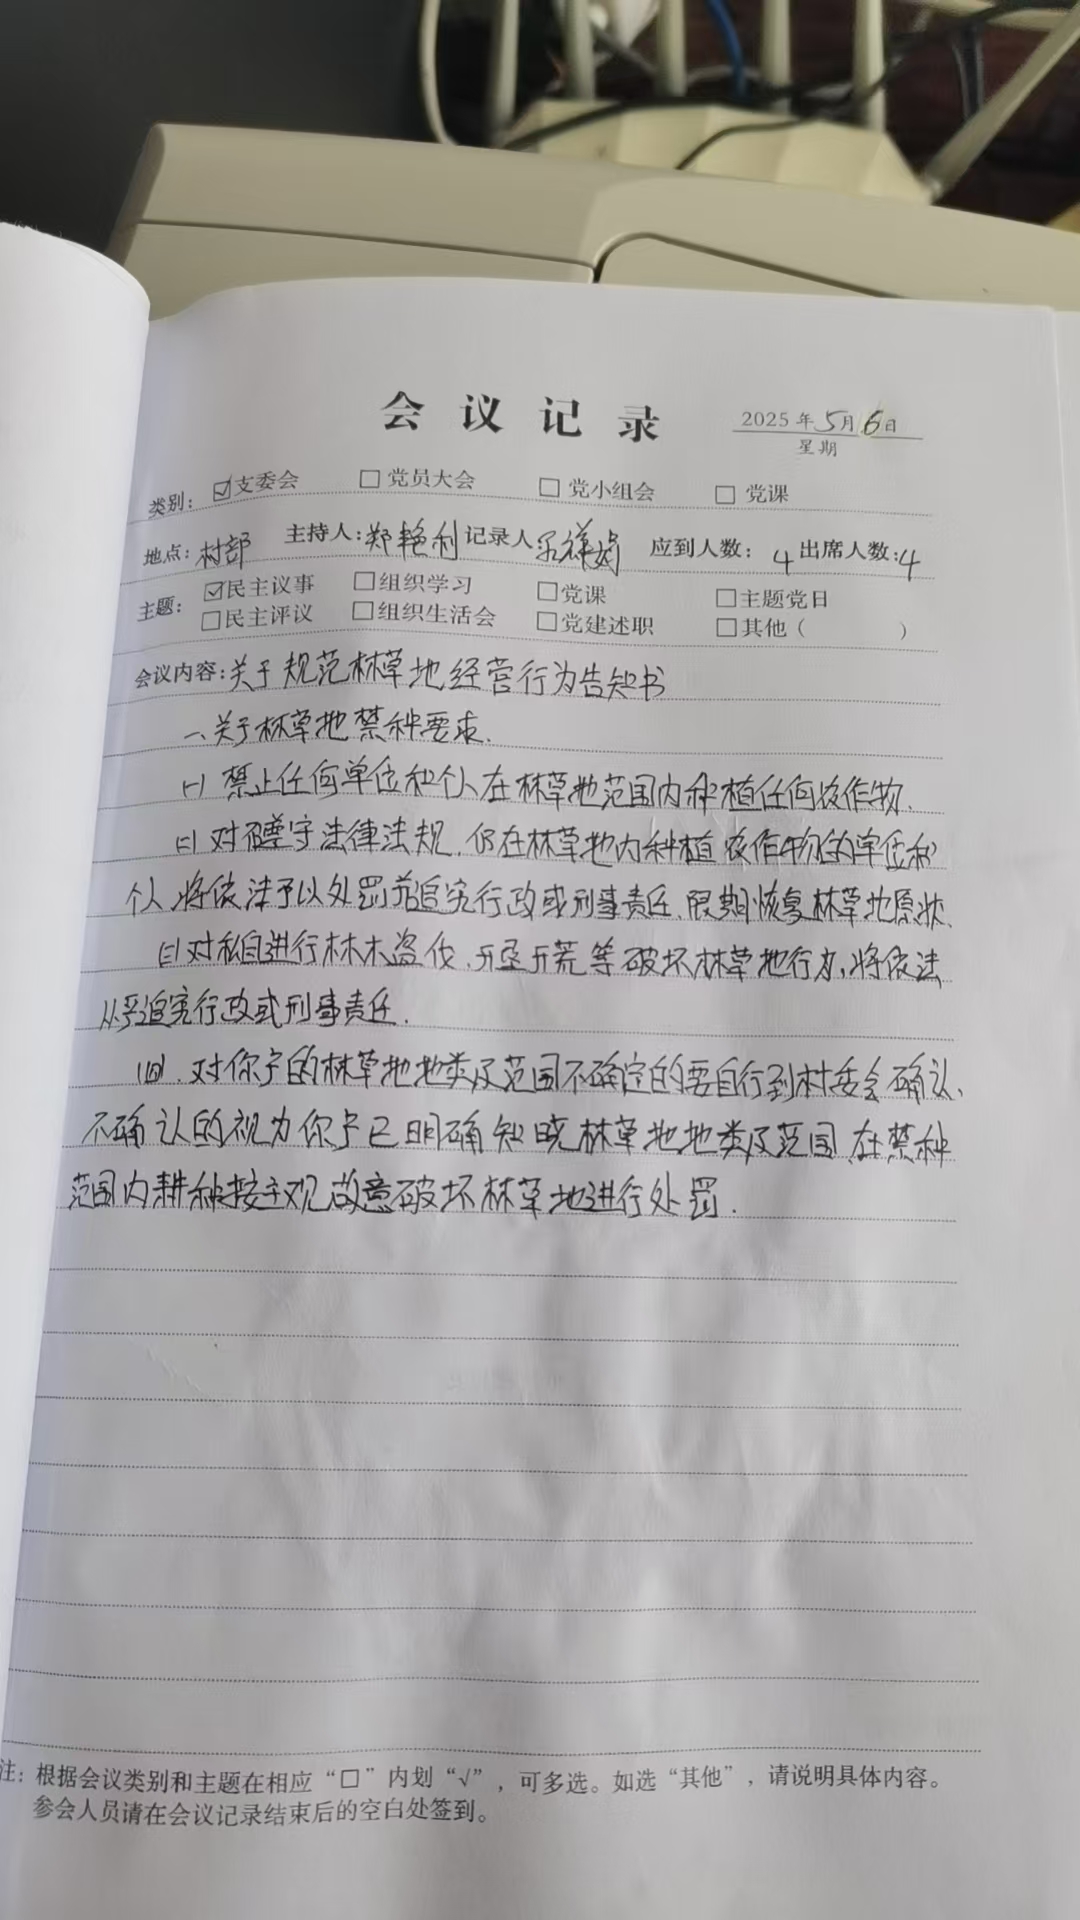 会议记录
2025年5月6日
星期
类别：☑支委会 □党员大会 □党小组会 □党课
地点：村部 主持人：郑艳利 记录人 祥娟 应到人数：4 出席人数：4
主题：☑民主议事 □组织学习 □党课 □主题党日
□民主评议 □组织生活会 □党建述职 □其他（ ）
会议内容：关于规范林草地经营行为告知书
一、关于林草地禁种要求.
(一) 禁止任何单位和个人在林草地范围内种植任何农作物.
(二) 对不遵守法律法规，仍在林草地内种植农作物的单位和
个人，将依法予以处罚并追究行政或刑事责任、限期恢复林草地原状.
(三) 对私自进行林木盗伐，开垦开荒等破坏林草地行为，将依法
从严追究行政或刑事责任.
(四). 对你户的林草地地类及范围不确定的要自行到村委会确认，
不确认的视为你户已明确知晓林草地地类及范围，在禁种
范围内耕种按主观故意破坏林草地进行处罚.
注：根据会议类别和主题在相应“□”内划“√”，可多选。如选“其他”，请说明具体内容。
参会人员请在会议记录结束后的空白处签到。